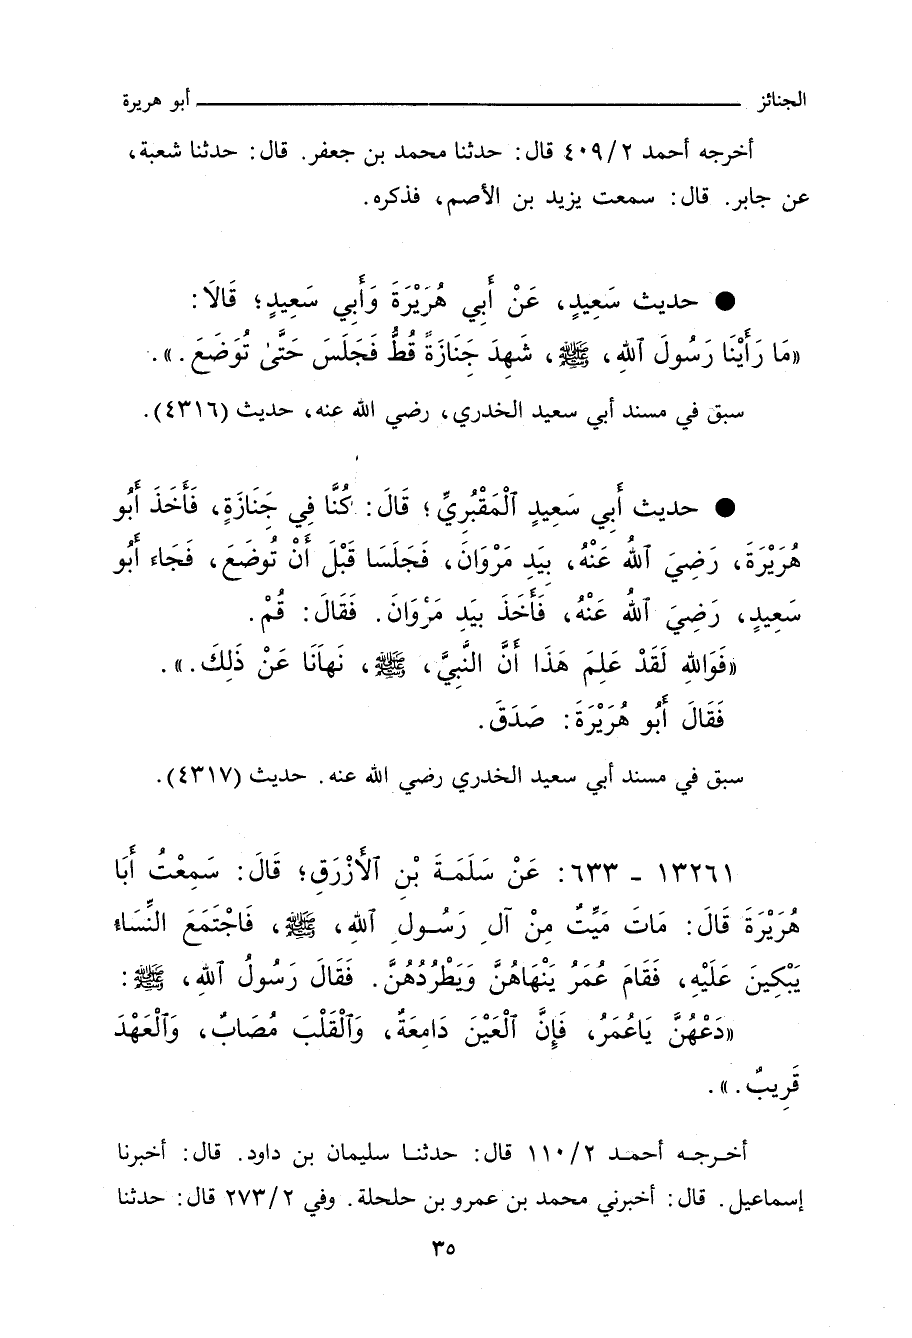 الجنائز ــــــــــــــــــــ أبو هريرة
أخرجه أحمد ٤٠٩/٢ قال: حدثنا محمد بن جعفر. قال: حدثنا شعبة،
عن جابر. قال: سمعت يزيد بن الأصم، فذكره.
● حديث سَعِيدٍ، عَنْ أَبِي هُرَيْرَةَ وَأَبِي سَعِيدٍ؛ قَالَا:
«مَا رَأَيْنَا رَسُولَ ٱللهِ، ﷺ، شَهِدَ جَنَازَةً قُطُّ فَجَلَسَ حَتَّىٰ تُوَضَعَ.».
سبق في مسند أبي سعيد الخدري، رضي الله عنه، حديث (٤٣١٦).
● حديث أَبِي سَعِيدٍ ٱلْمَقْبُرِيِّ؛ قَالَ: كُنَّا فِي جَنَازَةٍ، فَأَخَذَ أَبُو
هُرَيْرَةَ، رَضِيَ ٱللهُ عَنْهُ، بِيَدِ مَرْوَانَ، فَجَلَسَا قَبْلَ أَنْ تُوضَعَ، فَجَاء أَبُو
سَعِيدٍ، رَضِيَ ٱللهُ عَنْهُ، فَأَخَذَ بِيَدِ مَرْوَانَ. فَقَالَ: قُمْ.
«فَوَاللهِ لَقَدْ عَلِمَ هَذَا أَنَّ النَّبِيَّ، ﷺ، نَهَانَا عَنْ ذَلِكَ.».
فَقَالَ أَبُو هُرَيْرَةَ: صَدَقَ.
سبق في مسند أبي سعيد الخدري رضي الله عنه. حديث (٤٣١٧).
١٣٢٦١ - ٦٣٣: عَنْ سَلَمَةَ بْنِ ٱلأَزْرَقِ؛ قَالَ: سَمِعْتُ أَبَا
هُرَيْرَةَ قَالَ: مَاتَ مَيِّتٌ مِنْ آلِ رَسُولِ ٱللهِ، ﷺ، فَاجْتَمَعَ النِّسَاءُ
يَبْكِينَ عَلَيْهِ، فَقَامَ عُمَرُ يَنْهَاهُنَّ وَيَطْرُدُهُنَّ. فَقَالَ رَسُولُ ٱللهِ، ﷺ:
«دَعْهُنَّ يَاعُمَرُ، فَإِنَّ ٱلْعَيْنَ دَامِعَةٌ، وَٱلْقَلْبَ مُصَابٌ، وَٱلْعَهْدَ
قَرِيبٌ.».
أخرجه أحمد ١١٠/٢ قال: حدثنا سليمان بن داود. قال: أخبرنا
إسماعيل. قال: أخبرني محمد بن عمرو بن حلحلة. وفي ٢٧٣/٢ قال: حدثنا
٣٥